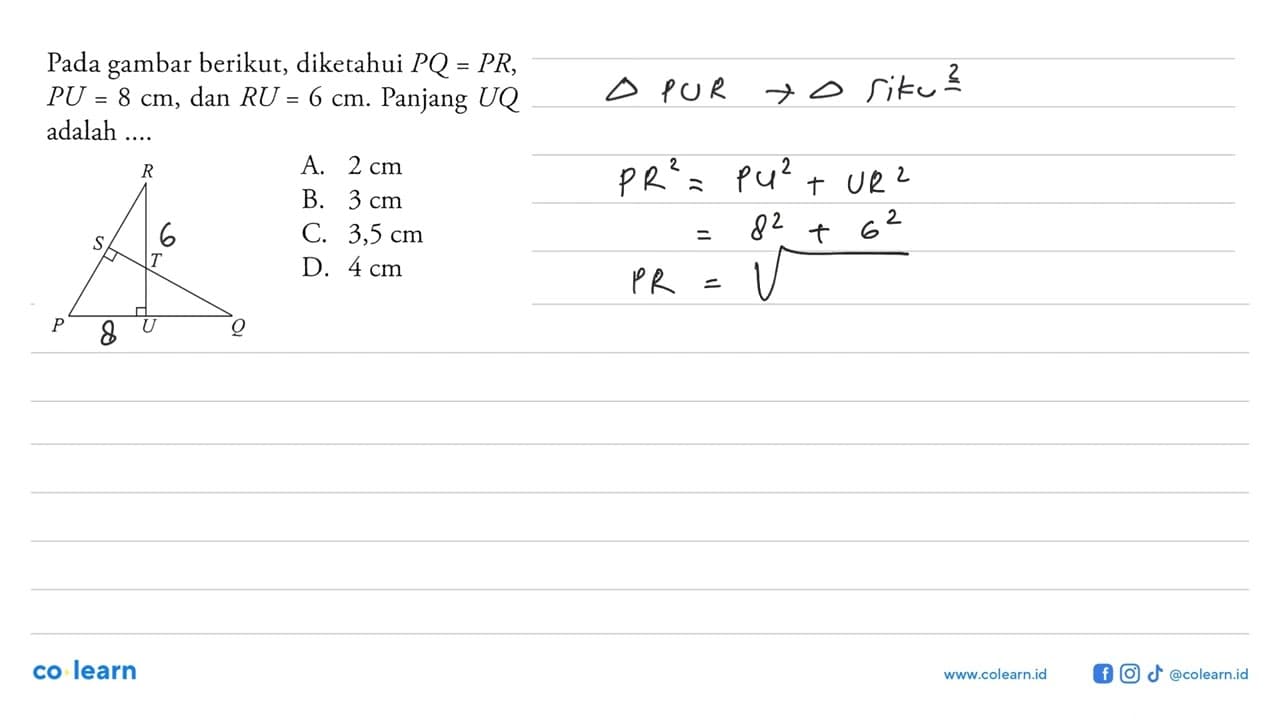 Pada gambar berikut, diketahui PQ = PR,
PU = 8 cm, dan RU = 6 cm. Panjang UQ
adalah ....
A. 2 cm
B. 3 cm
C. 3,5 cm
D. 4 cm
R
S
6
T
P
8
U
Q
△ PUR → △ siku²
PR² = PU² + UR²
= 8² + 6²
PR = √
co learn
www.colearn.id
@colearn.id